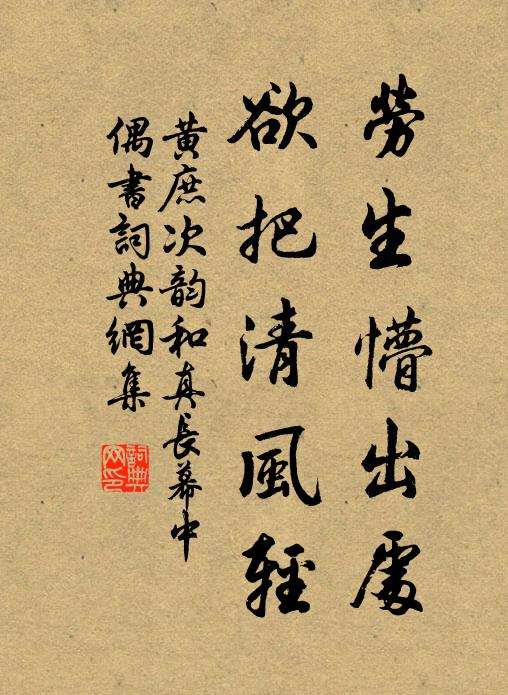 勞生懵出處
欲把清風輕
黄庶次韵和真長幕中
偶書詞典網集
詞典
网印